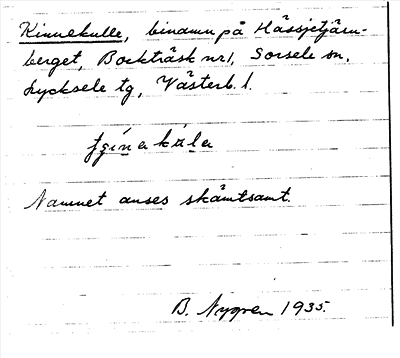 Kinnekulle, binamn på Hässjetjärn-
berget, Bockträsk nr 1, Sorsele sn,
Lycksele tg, Västerb. l.
Namnet anses skämtsamt.
B. Nygren 1935.